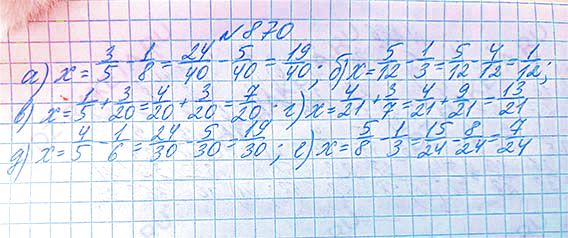 №870
а) x = 3/5 - 1/8 = 24/40 - 5/40 = 19/40; б) x = 5/12 - 1/3 = 5/12 - 4/12 = 1/12;
в) x = 1/5 + 3/20 = 4/20 + 3/20 = 7/20. г) x = 4/21 + 3/7 = 4/21 + 9/21 = 13/21
д) x = 4/5 - 1/6 = 24/30 - 5/30 = 19/30; е) x = 5/8 - 1/3 = 15/24 - 8/24 = 7/24